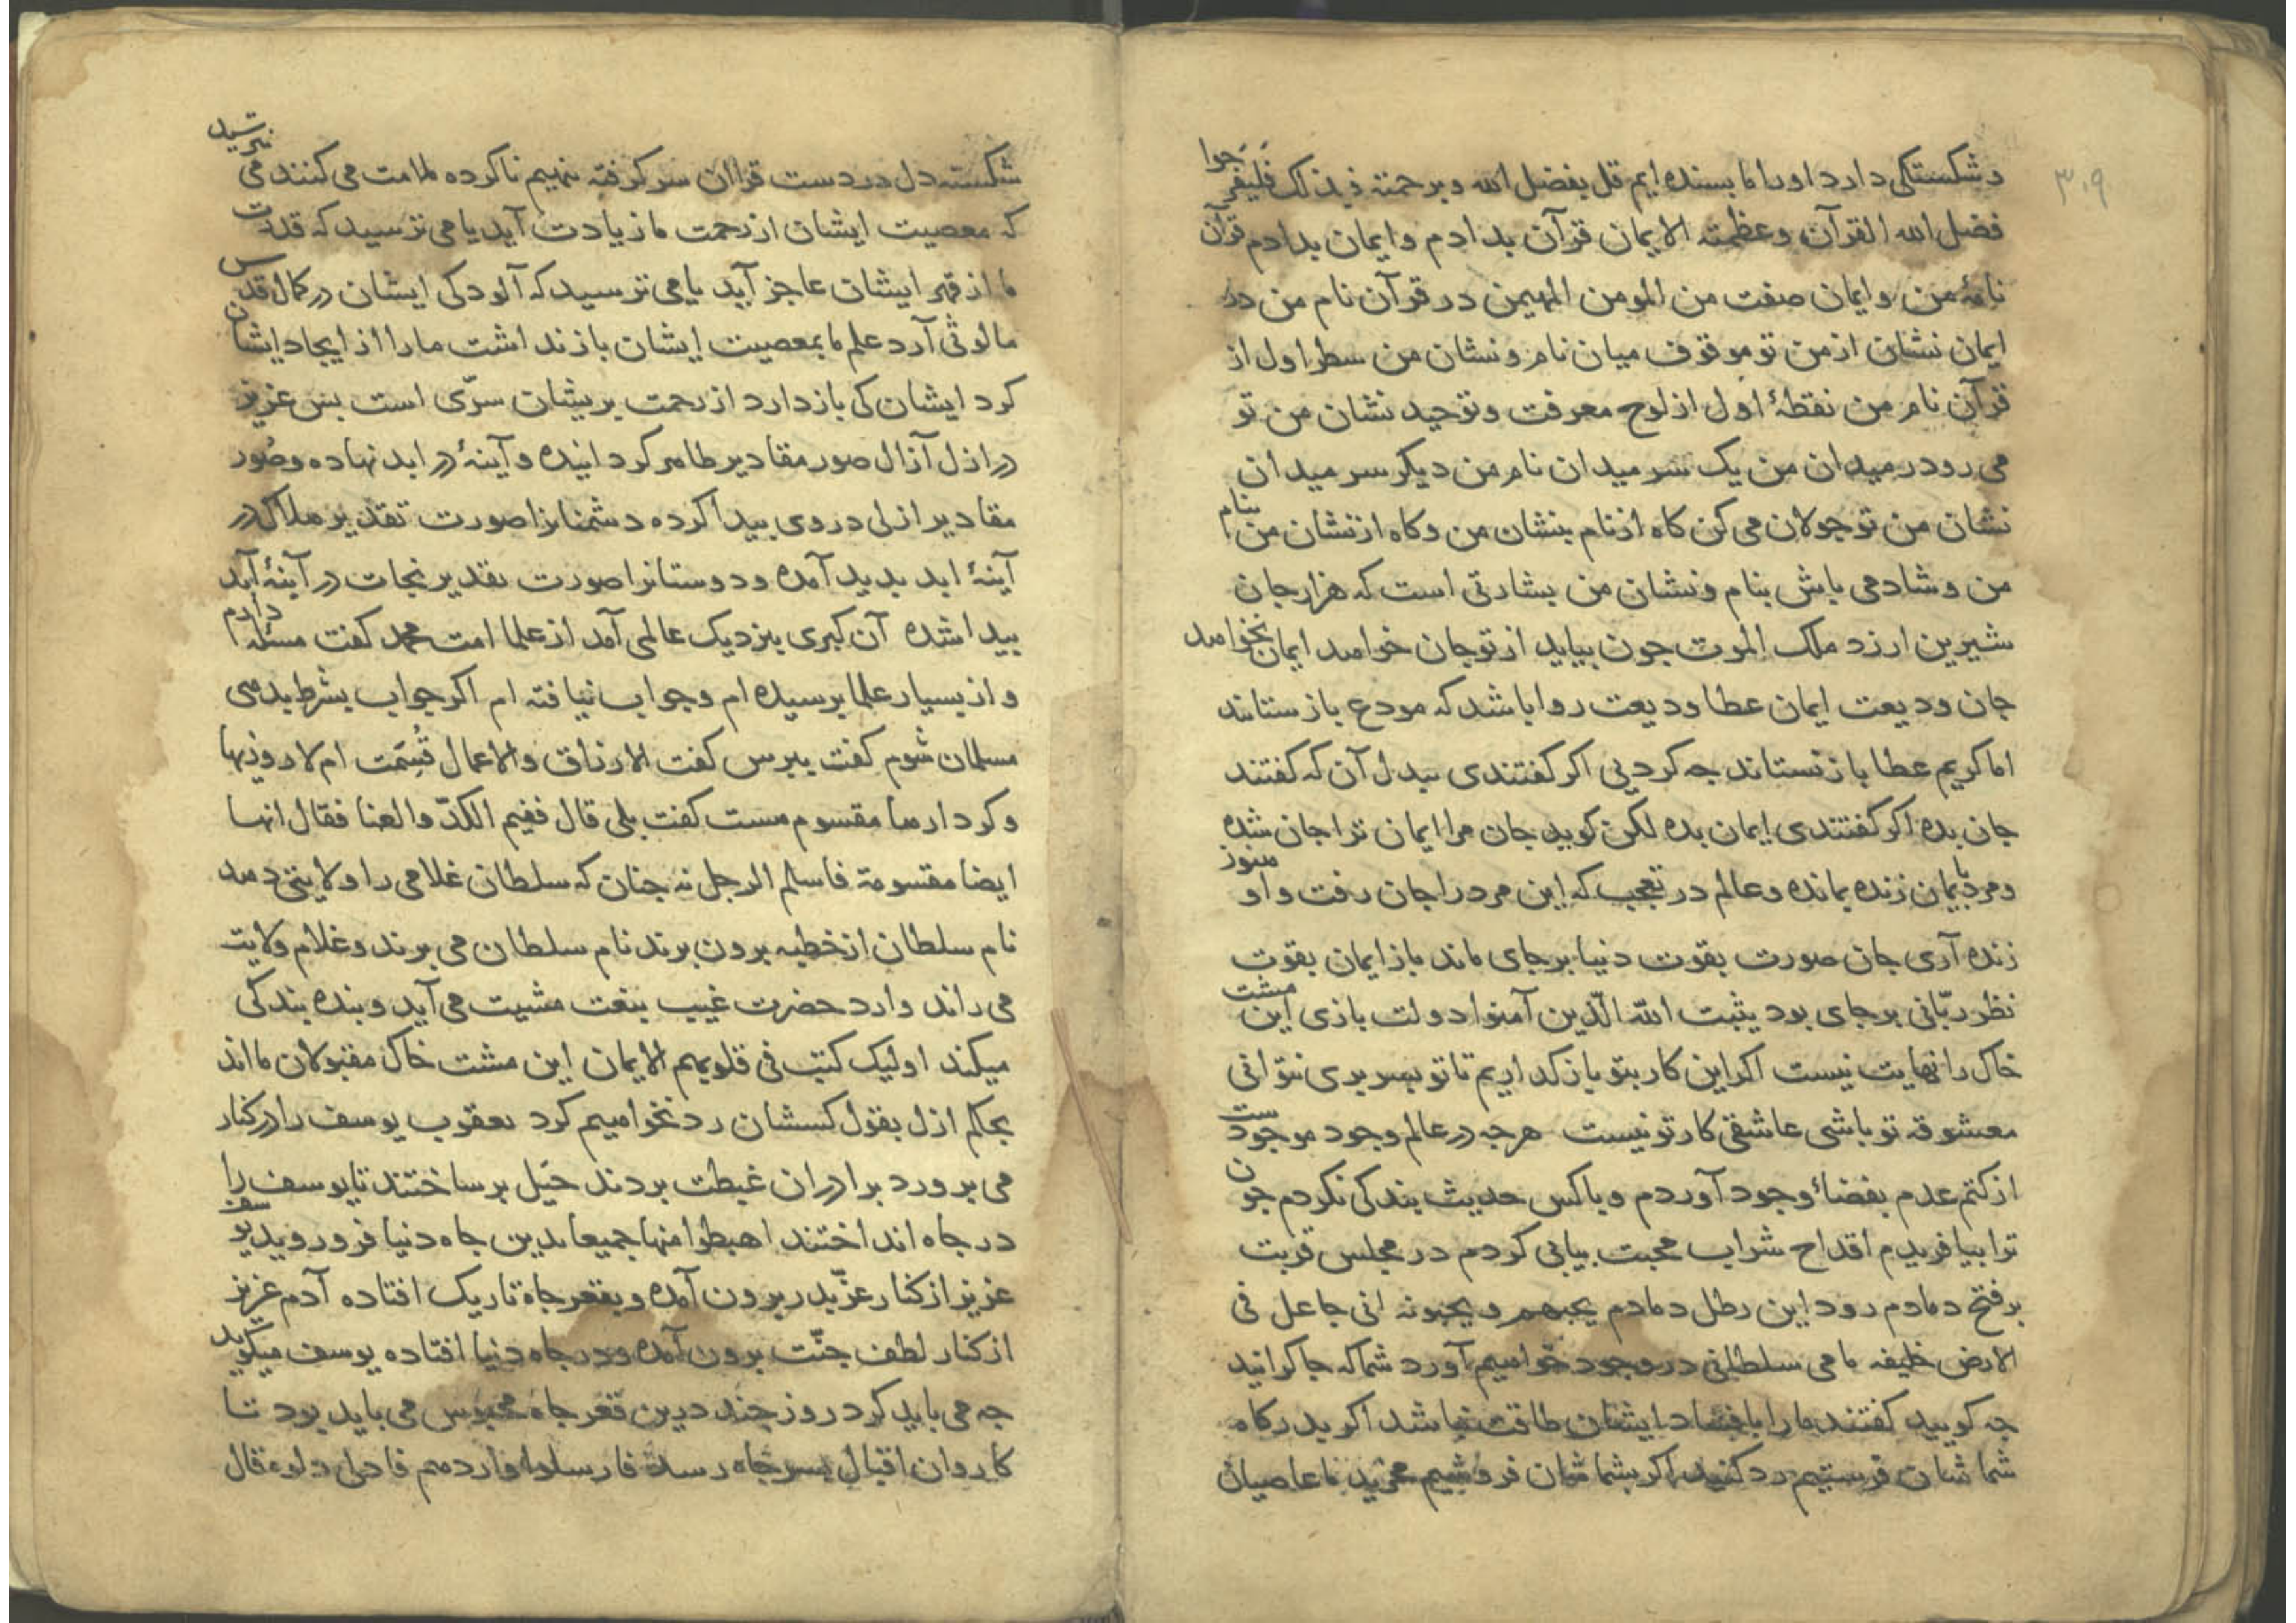 ۳۰۹
و شکستکی دارد اورا ما بسنده ایم قل بفضل الله و برحمته فبذلک فلیفرحوا
فضل الله القرآن وعظمته الایمان قرآن بدادم و ایمان بدادم قرآن
نامهٔ من و ایمان صفت من المومن المهیمن در قرآن نام من در
ایمان نشان از من تو موقوف میان نام و نشان من سطر اول از
قرآن نام من نقطهٔ اول از لوح معرفت و توحید نشان من تو
می رو در میدان من یک سر میدان نام من دیکر سر میدان
نشان من تو جولان می کن کاه از نام بنشان من و کاه از نشان من بنام
من و شاد می باش بنام و نشان من بشارتی است که هزار جان
شیرین ارزد ملک الموت جون بیاید از تو جان خواهد ایمان نخواهد
جان ودیعت ایمان عطا ودیعت روا باشد که مودع باز ستاند
اما کریم عطا باز نستاند جه کردیی اکر کفتندی ببدل آن که کفتند
جان بده اکر کفتندی ایمان بده لکن کوید جان مرا ایمان ترا جان شده
و مرد بایمان زنده بمانده و عالم در تعجب که این مرد را جان رفت و او هنوز
زنده آری جان صورت بقوت دنیا برجای ماند باز ایمان بقوت
نظر ربّانی برجای بود یثبت الله الّذین آمنوا دولت بازی این مشت
خاک را نهایت نیست اکر این کار بتو باز کذاریم تا تو بسر بری نتوانی
معشوقه تو باشی عاشقی کار تو نیست هرجه در عالم وجود موجودست
از کتم عدم بفضاء وجود آوردم و باکس حدیث بندکی نکردم جون
ترا بیافریدم اقداح شراب محبت بیابی کردم در مجلس قربت
بر فتح دمادم رود این رطل دمادم یحبهم و یحبونه انی جاعل فی
الارض خلیفه ما می سلطانی در وجود خواهیم آورد شما که جاکرانید
جه کویید کفتند ما را با فساد ایشان طاقت نباشد اکر بدرکاه
شما شان فرستیم رد کنید اکر بشما شان فروشیم مخرید ما عاصیان
شکسته دل در دست قرآان سر کرفته نهیم ناکرده ملامت می کنند می ترسید
که معصیت ایشان از رحمت ما زیادت آید یا می ترسید که قدرت
ما از قهر ایشان عاجز آید یا می ترسید که آلودکی ایشان در کمال قدس
ما لوثی آرد علم ما بمعصیت ایشان باز نداشت ما را از ایجاد ایشان
کرد ایشان کی باز دارد از رحمت بریشان سرّی است بس عزیز
در ازل آزال صور مقادیر ظاهر کردانیده و آینهٔ در ابد نهاده و صُور
مقادیر ازلی در وی بیدا کرده دشمنانرا صورت تقدیر هلاک در
آینهٔ ابد بدید آمده و دوستانرا صورت تقدیر نجات در آینهٔ ابد
بیدا شده آن کبری بنزدیک عالمی آمد از علما امت محمد کفت مسئله دارم
و از بسیار علما برسیده ام و جواب نیافته ام اکر جواب بشرط بدهی
مسلمان شوم کفت ببرس کفت الارزاق والاعمال قُسِمَت ام لا روزیها
و کردارها مقسوم هست کفت بلی قال ففیم الکدّ والعنا فقال انها
ایضا مقسومة فاسلم الرجل نه جنان که سلطان غلامی را ولایتی دهد
نام سلطان از خطبه برون برند نام سلطان می برند و غلام ولایت
می راند وارد حضرت غیب بنعت مشیت می آید و بنده بندکی
میکند اولیک کتب فی قلوبهم الایمان این مشت خاک مقبولان مااند
بحکم ازل بقول کسشان رد نخواهیم کرد یعقوب یوسف را در کنار
می برورد برادران غبطت بردند حیَل برساختند تا یوسف را
در جاه انداختند اهبطوا منها جمیعا بدین جاه دنیا فرو روید یوسف
عزیز از کنار عزّ بدر برون آمده و بقعر جاه تاریک افتاده آدم عزیز
از کنار لطف جنّت برون آمده و در جاه دنیا افتاده یوسف میکوید
جه می باید کرد روز جند درین قعر جاه محبوس می باید بود تا
کاروان اقبال بسر جاه رسد فارسلوا واردهم فادلی دلوه قال